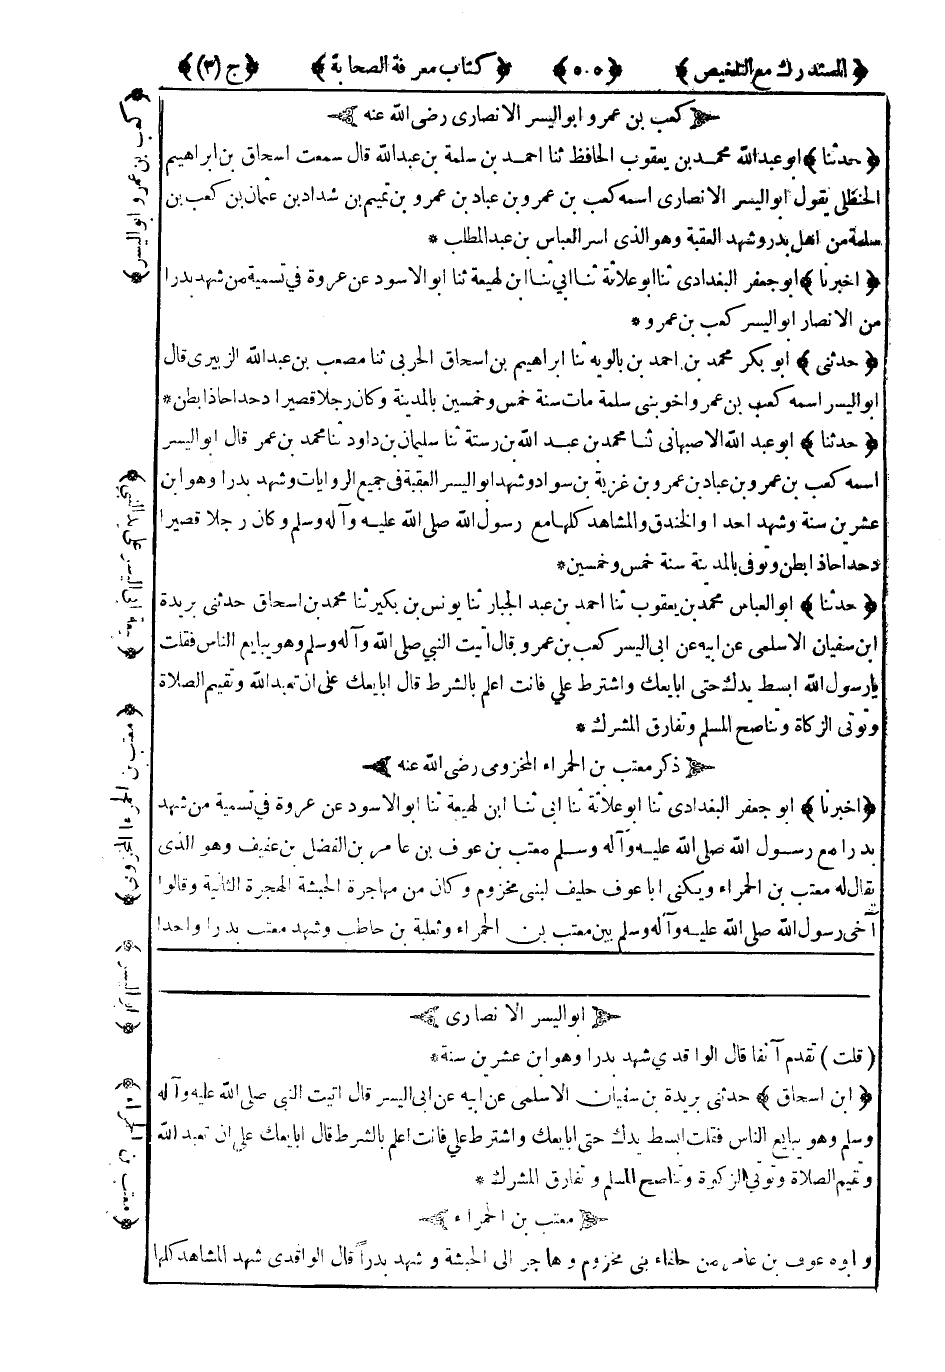 ﴿المستدرك مع التلخيص﴾ ﴿٥٠٥﴾ ﴿كتاب معرفة الصحابة﴾ ﴿ج (٣)﴾
كعب بن عمرو ابو اليسر الانصارى رضى الله عنه
﴿حدثنا﴾ ابو عبدالله محمد بن يعقوب الحافظ ثنا احمد بن سلمة بن عبدالله قال سمعت اسحاق بن ابراهيم
الحنظلى يقول ابو اليسر الانصارى اسمه كعب بن عمرو بن عباد بن عمرو بن تميم بن شداد بن عثمان بن كعب بن
سلمة من اهل بدر وشهد العقبة وهو الذى اسر العباس بن عبد المطلب *
﴿اخبرنا﴾ ابو جعفر البغدادى ثنا ابو علاثة ثنا ابي ثنا ابن لهيعة ثنا ابو الاسود عن عروة فى تسمية من شهد بدرا
من الانصار ابو اليسر كعب بن عمرو *
﴿حدثنى﴾ ابو بكر محمد بن احمد بن بالويه ثنا ابراهيم بن اسحاق الحربى ثنا مصعب بن عبدالله الزبيرى قال
ابو اليسر اسمه كعب بن عمرو اخو بنى سلمة مات سنة خمس وخمسين بالمدينة وكان رجلا قصيرا دحداحا ذا بطن *
﴿حدثنا﴾ ابو عبد الله الاصبهانى ثنا محمد بن عبد الله بن رستة ثنا سليمان بن داود ثنا محمد بن عمر قال ابو اليسر
اسمه كعب بن عمرو بن عباد بن عمرو بن غزية بن سواد وشهد ابو اليسر العقبة فى جميع الروايات وشهد بدرا وهو ابن
عشرين سنة وشهد احدا والخندق والمشاهد كلها مع رسول الله صلى الله عليه وآله وسلم وكان رجلا قصيرا
دحداحا ذا بطن وتوفى بالمدينة سنة خمس وخمسين *
﴿حدثنا﴾ ابو العباس محمد بن يعقوب ثنا احمد بن عبد الجبار ثنا يونس بن بكير ثنا محمد بن اسحاق حدثنى بريدة
ابن سفيان الاسلمى عن ابيه عن ابى اليسر كعب بن عمرو قال اتيت النبي صلى الله وآله وسلم وهو يبايع الناس فقلت
يا رسول الله ابسط يدك حتى ابايعك واشترط علي فانت اعلم بالشرط قال ابايعك على ان تعبد الله وتقيم الصلاة
وتوتى الزكاة وتناصح المسلم وتفارق المشرك *
ذكر معتب بن الحمراء المخزومى رضى الله عنه
﴿اخبرنا﴾ ابو جعفر البغدادى ثنا ابو علاثة ثنا ابى ثنا ابن لهيعة ثنا ابو الاسود عن عروة فى تسمية من شهد
بدرا مع رسول الله صلى الله عليه وآله وسلم معتب بن عوف بن عامر بن الفضل بن عفيف وهو الذى
يقال له معتب بن الحمراء ويكنى ابا عوف حليف لبنى مخزوم وكان من مهاجرة الحبشة الهجرة الثانية وقالوا
آخى رسول الله صلى الله عليه وآله وسلم بين معتب بن الحمراء وثعلبة بن حاطب وشهد معتب بدرا واحدا
ابو اليسر الانصارى
(قلت) تقدم آنفا قال الواقدي شهد بدرا وهو ابن عشرين سنة *
﴿ابن اسحاق﴾ حدثنى بريدة بن سفيان الاسلمى عن ابيه عن ابى اليسر قال اتيت النبى صلى الله عليه وآله
وسلم وهو يبايع الناس فقلت ابسط يدك حتى ابايعك واشترط علي فانت اعلم بالشرط قال ابايعك على ان تعبد الله
وتقيم الصلاة وتوتي الزكوة وتناصح المسلم وتفارق المشرك *
معتب بن الحمراء
وابوه عوف بن عامر من حلفاء بنى مخزوم وهاجر الى الحبشة وشهد بدرا قال الواقدى شهد المشاهد كلها
﴿كعب بن عمرو ابو اليسر﴾
﴿بيعة ابى اليسر على يد النبي﴾
﴿معتب بن الحمراء المخزومى﴾
﴿ابو اليسر﴾
﴿معتب بن الحمراء﴾